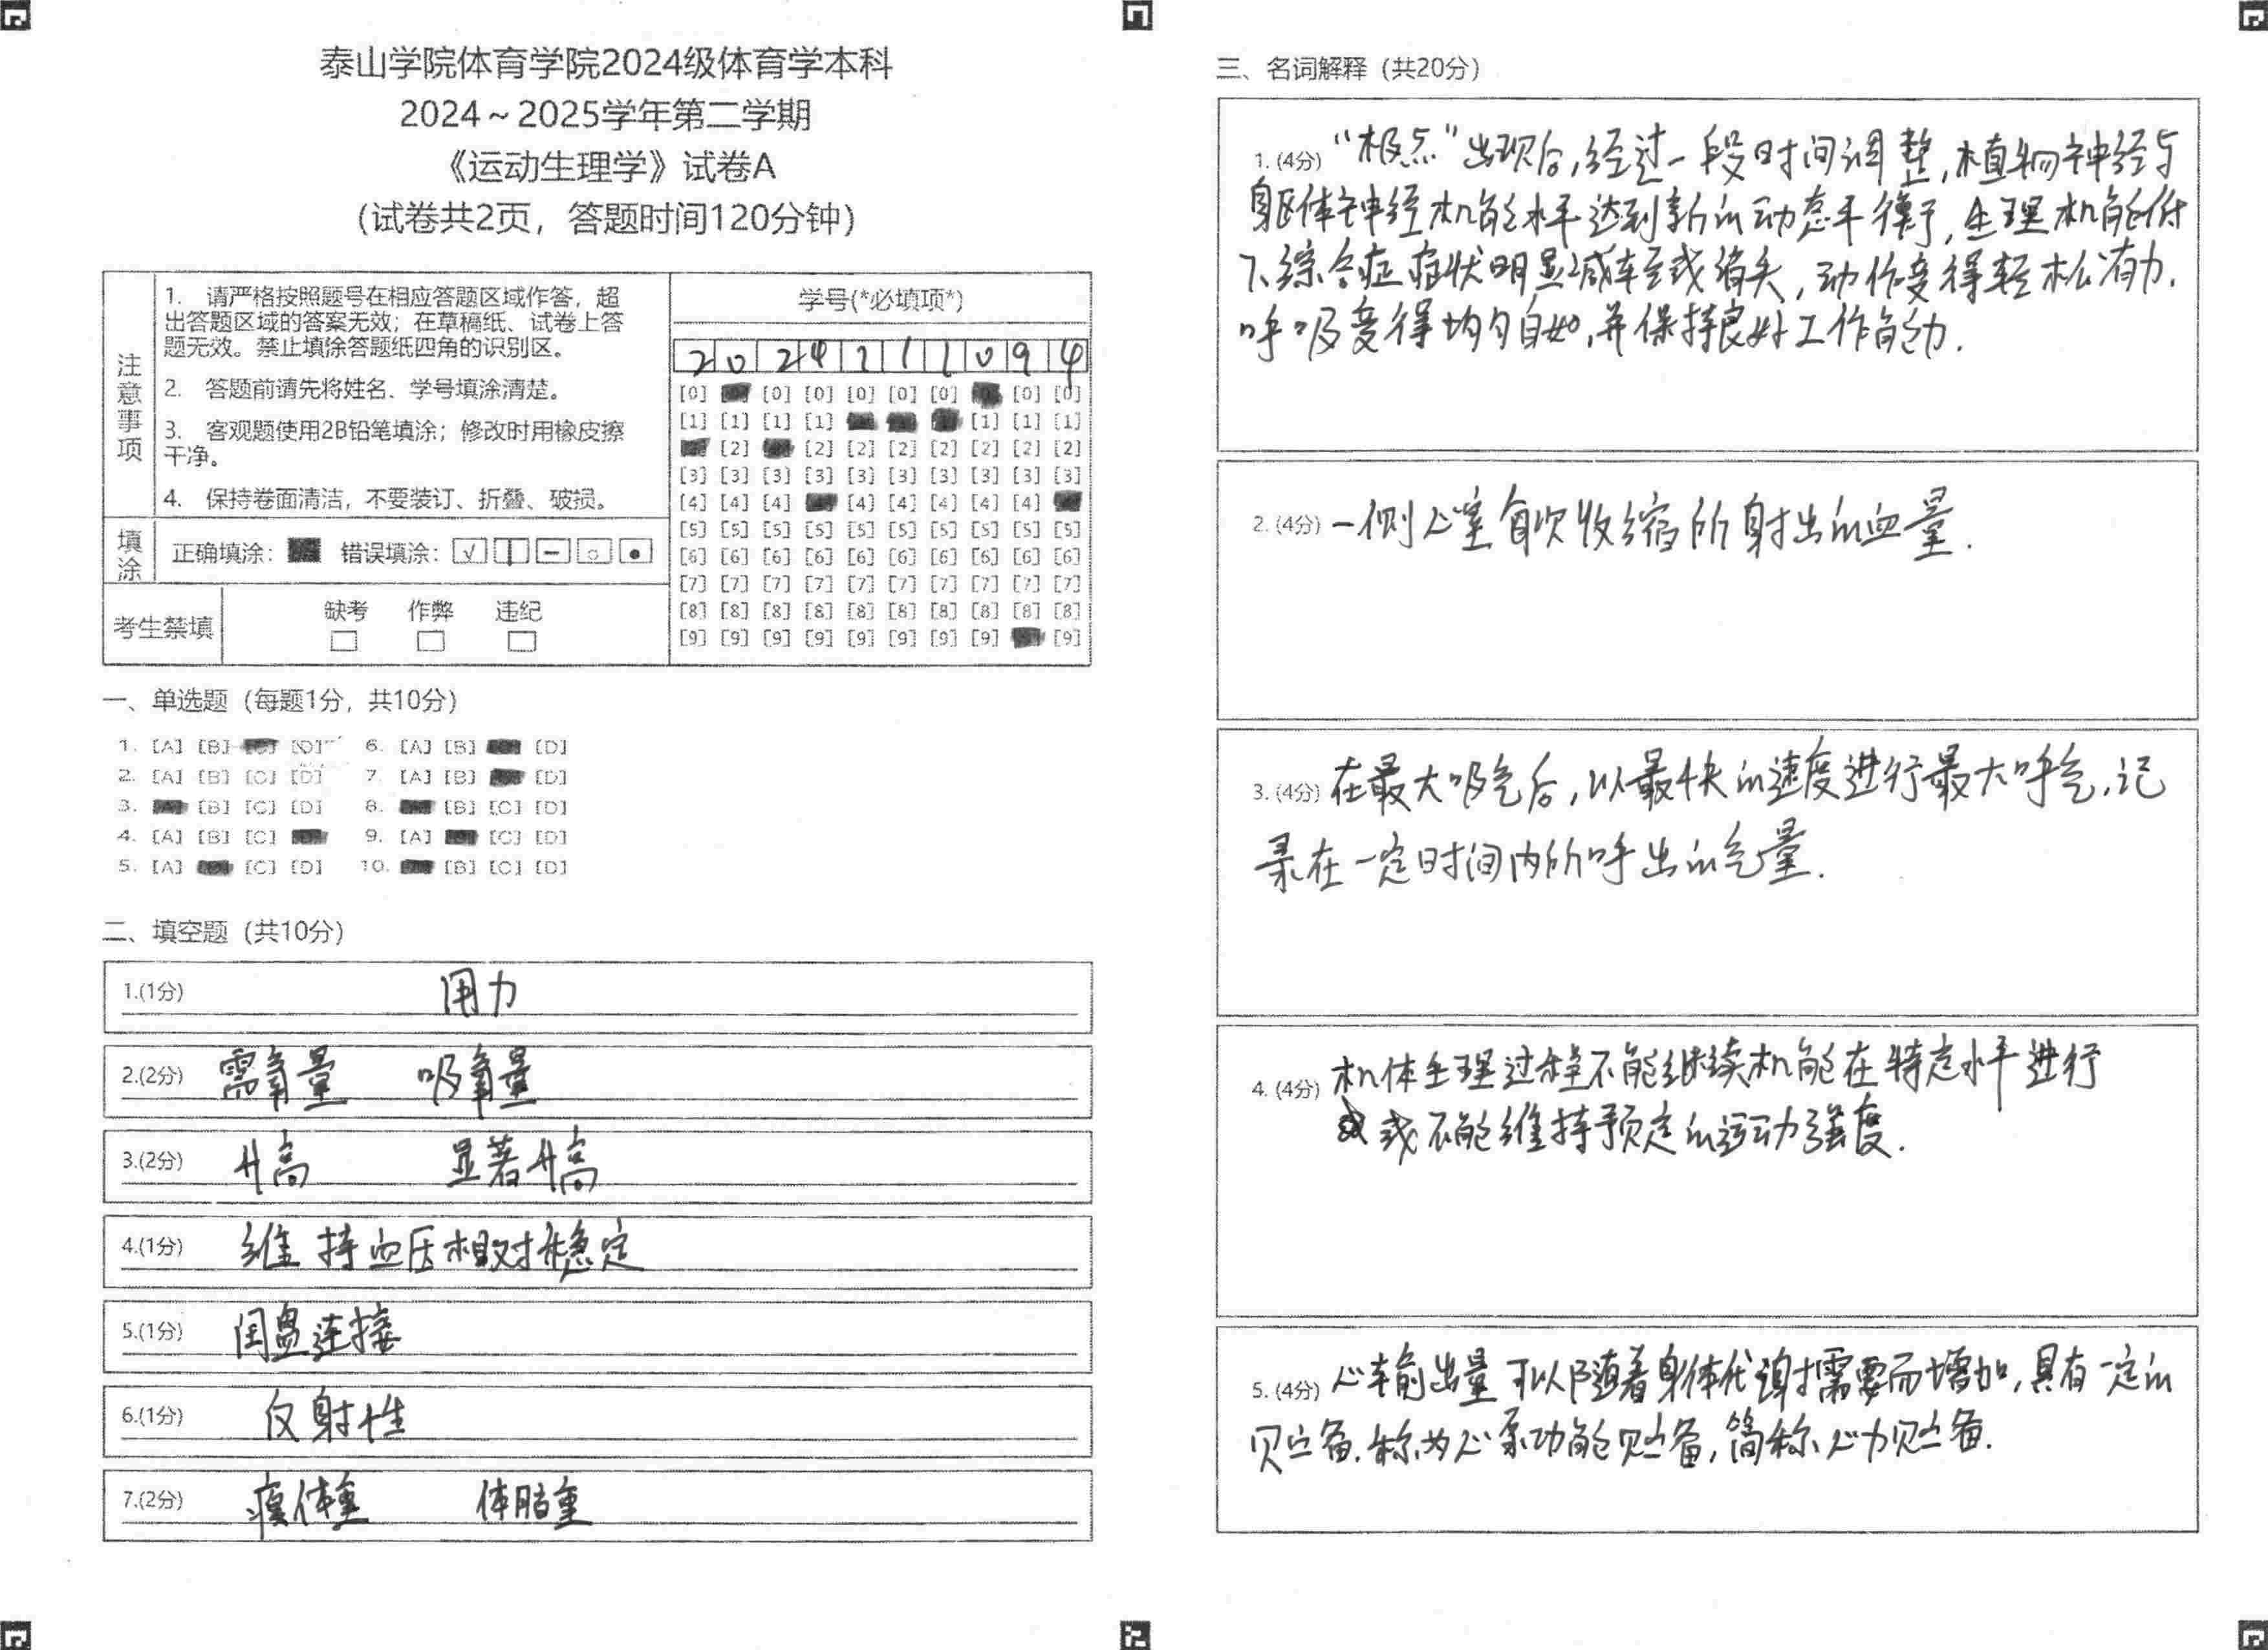 泰山学院体育学院2024级体育学本科
2024～2025学年第二学期
《运动生理学》试卷A
(试卷共2页，答题时间120分钟)
注意事项
1. 请严格按照题号在相应答题区域作答，超
出答题区域的答案无效；在草稿纸、试卷上答
题无效。禁止填涂答题纸四角的识别区。
2. 答题前请先将姓名、学号填涂清楚。
3. 客观题使用2B铅笔填涂；修改时用橡皮擦
干净。
4. 保持卷面清洁，不要装订、折叠、破损。
填涂
正确填涂： 错误填涂：
考生禁填
缺考 作弊 违纪
学号(*必填项*)
2 0 2 4 1 1 1 0 9 4
[0] [0] [0] [0] [0] [0] [0] [0]
[1] [1] [1] [1] [1] [1] [1]
[2] [2] [2] [2] [2] [2] [2] [2]
[3] [3] [3] [3] [3] [3] [3] [3] [3] [3]
[4] [4] [4] [4] [4] [4] [4] [4]
[5] [5] [5] [5] [5] [5] [5] [5] [5] [5]
[6] [6] [6] [6] [6] [6] [6] [6] [6] [6]
[7] [7] [7] [7] [7] [7] [7] [7] [7] [7]
[8] [8] [8] [8] [8] [8] [8] [8] [8] [8]
[9] [9] [9] [9] [9] [9] [9] [9] [9]
一、单选题（每题1分，共10分）
1. [A] [B] [D] 6. [A] [B] [D]
2. [A] [B] [C] [D] 7. [A] [B] [D]
3. [B] [C] [D] 8. [B] [C] [D]
4. [A] [B] [C] 9. [A] [C] [D]
5. [A] [C] [D] 10. [B] [C] [D]
二、填空题（共10分）
1.(1分) 用力
2.(2分) 需氧量 吸氧量
3.(2分) 升高 显著升高
4.(1分) 维持血压相对稳定
5.(1分) 闰盘连接
6.(1分) 反射性
7.(2分) 瘦体重 体脂重
三、名词解释（共20分）
1. (4分) “极点”出现后,经过一段时间调整,植物神经与
躯体神经机能水平达到新的动态平衡,生理机能低
下综合症症状明显减轻或消失,动作变得轻松有力.
呼吸变得均匀自如,并保持良好工作能力.
2. (4分) 一侧心室每次收缩所射出的血量.
3. (4分) 在最大吸气后,以最快的速度进行最大呼气,记
录在一定时间内所呼出的气量.
4. (4分) 机体生理过程不能继续机能在特定水平进行
或不能维持预定的运动强度.
5. (4分) 心输出量可以随着身体代谢需要而增加,具有一定的
贮备.称为心泵功能贮备,简称心力贮备.